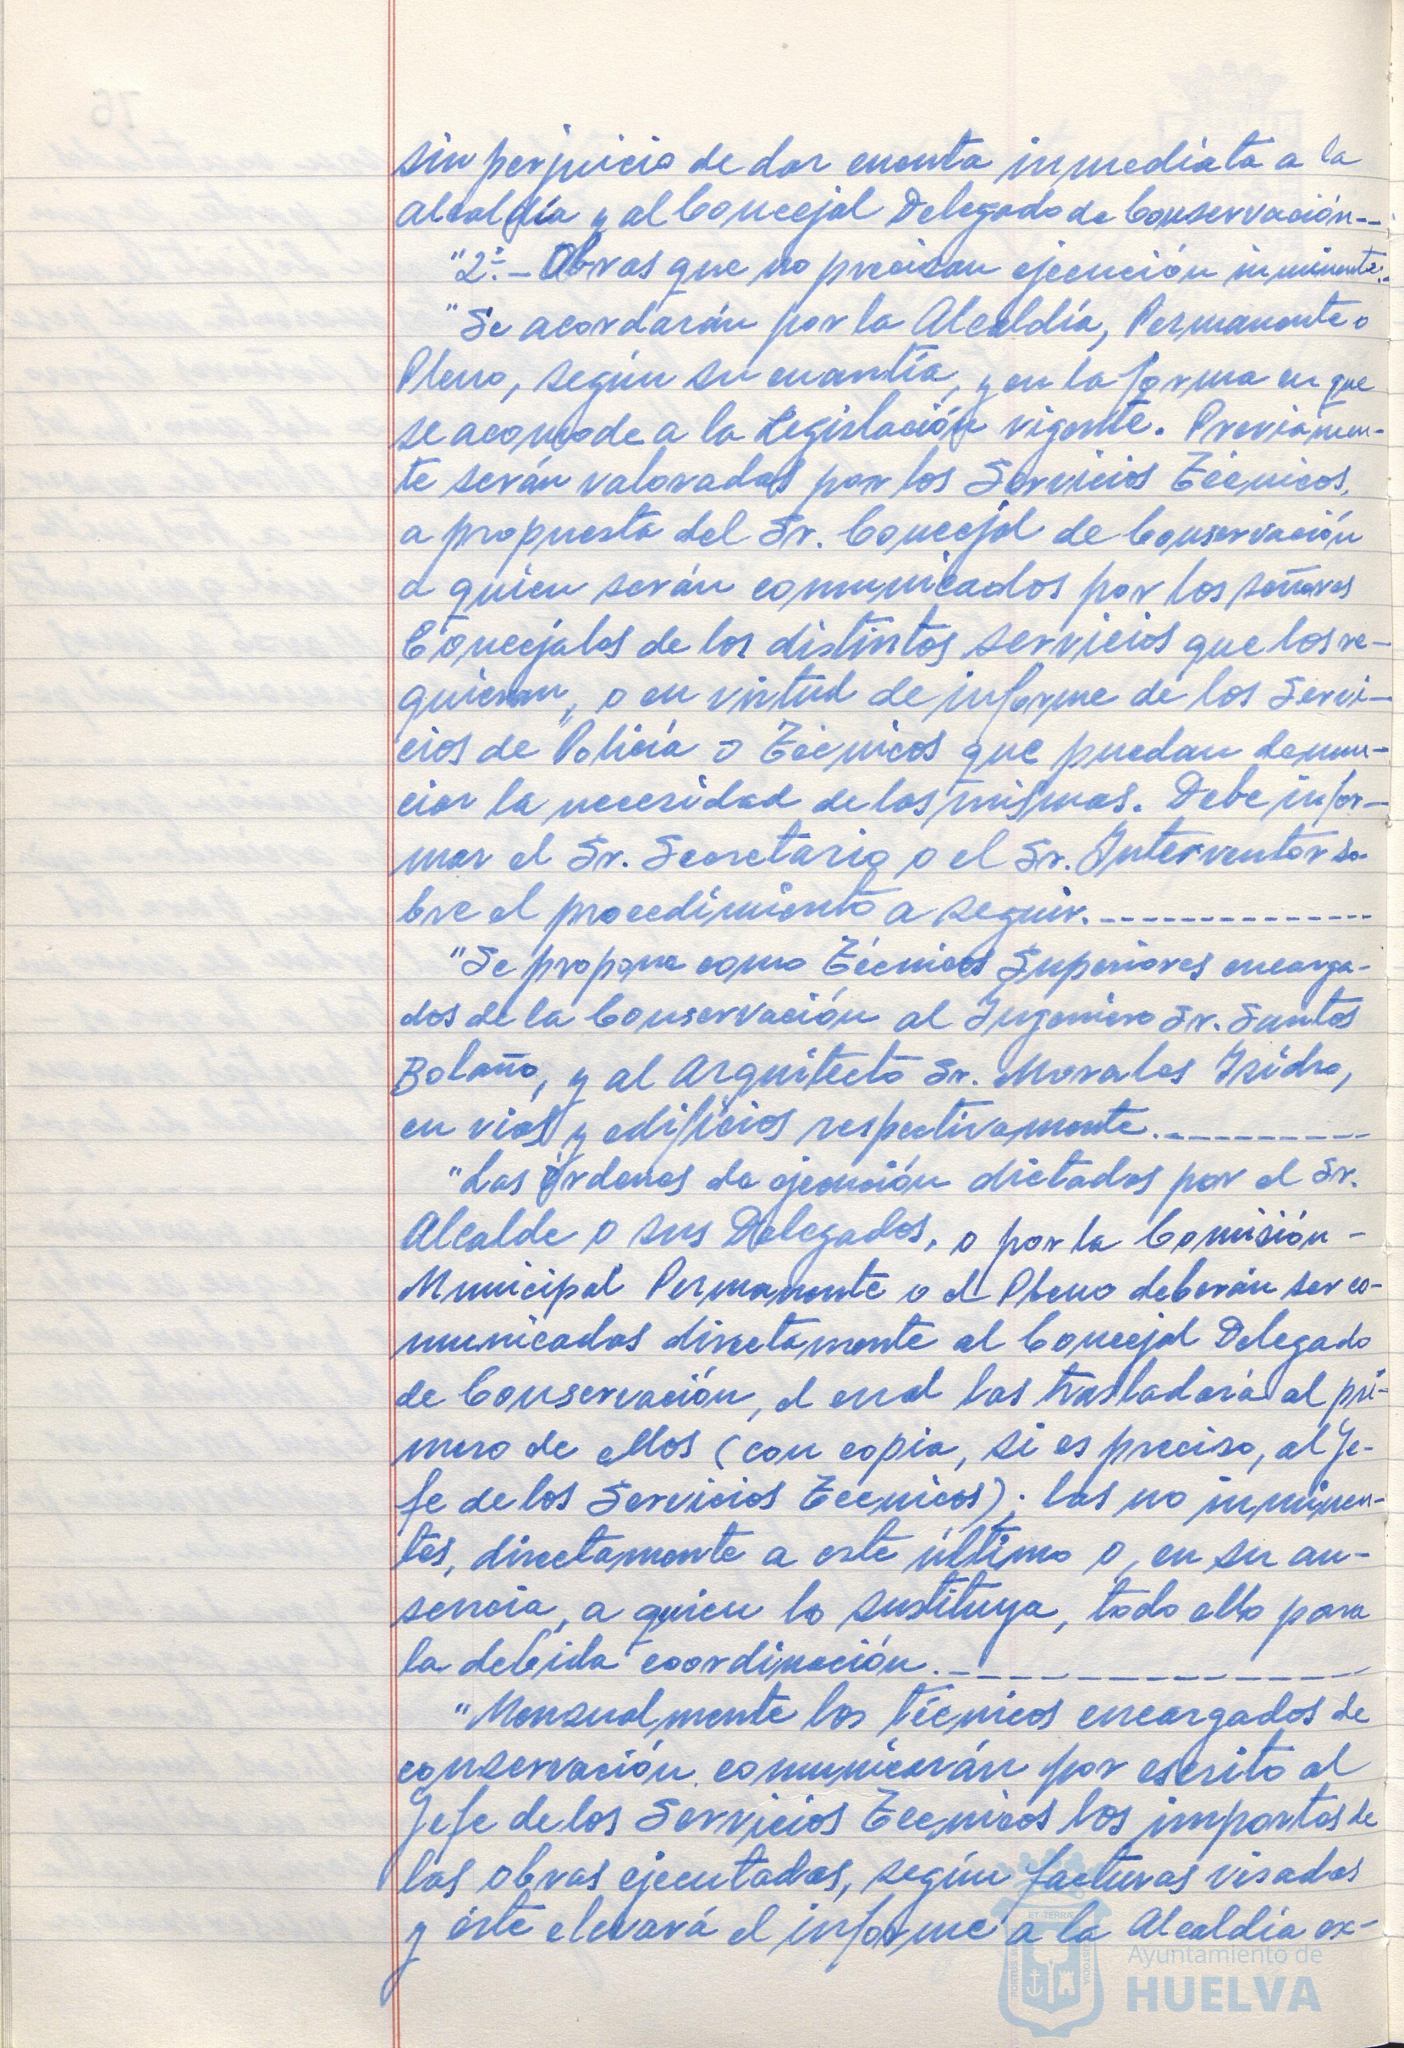 sin perjuicio de dar cuenta inmediata a la
Alcaldía y al Concejal Delegado de Conservación--
"2º.- Obras que no precisan ejecución inminente.-
"Se acordarán por la Alcaldía, Permanente o
Pleno, según su cuantía, y en la forma en que
se acomode a la Legislación vigente. Previamen-
te serán valoradas por los Servicios Técnicos,
a propuesta del Sr. Concejal de Conservación
a quien serán comunicados por los señores
Concejales de los distintos servicios que los re-
quieran, o en virtud de informe de los Servi-
cios de Policía o Técnicos que puedan denun-
ciar la necesidad de las mismas. Debe infor-
mar el Sr. Secretario o el Sr. Interventor so-
bre el procedimiento a seguir.--------------
"Se propone como Técnicos Superiores encarga-
dos de la Conservación al Ingeniero Sr. Santos
Bolaño, y al Arquitecto Sr. Morales Isidro,
en vias y edificios respectivamente.----------
"Las órdenes de ejecución dictadas por el Sr.
Alcalde o sus Delegados, o por la Comisión-
Municipal Permanente o el Pleno deberán ser co-
municadas directamente al Concejal Delegado
de Conservación, el cual las trasladará al pri-
mero de ellos (con copia, si es preciso, al Je-
fe de los Servicios Tecnicos); las no inminen-
tes, directamente a este último o, en su au-
sencia, a quien lo sustituya, todo ello para
la debida coordinación.---------------
"Mensualmente los técnicos encargados de
conservación comunicarán por escrito al
Jefe de los Servicios Tecnicos los importes de
las obras ejecutadas, según facturas visadas
y éste elevará el informe a la Alcaldía ex-
Ayuntamiento de
HUELVA